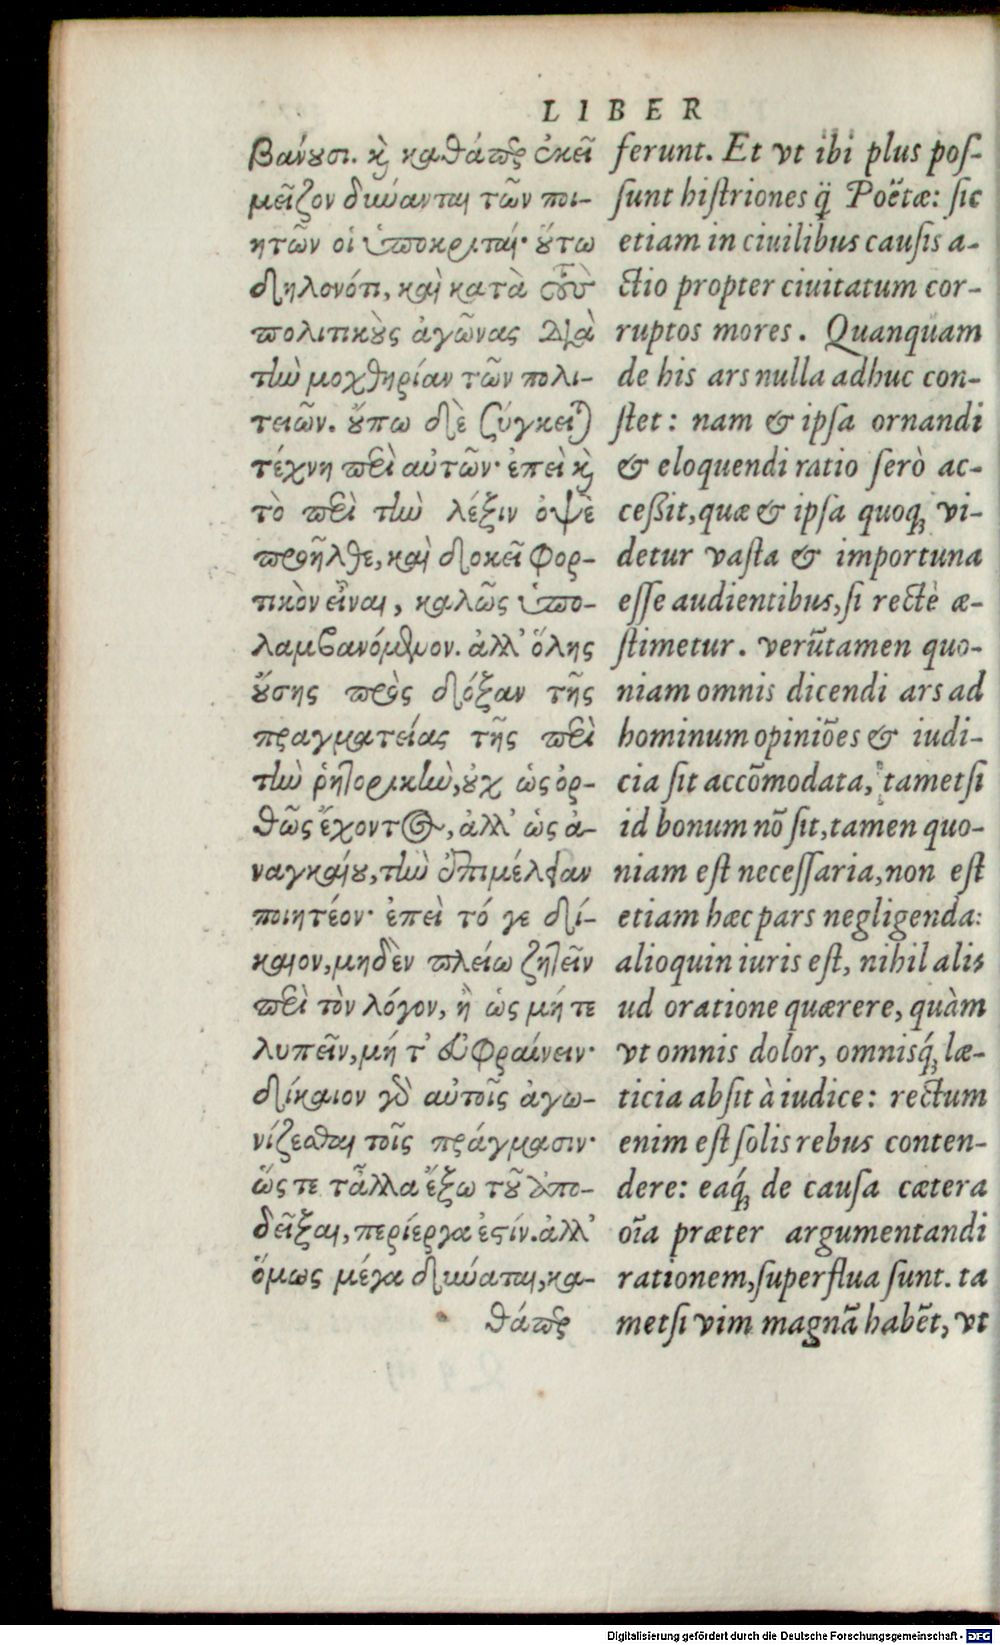 LIBER
βάνουσι. καὶ καθάπερ ἐκεῖ
μεῖζον δύνανται τῶν ποι-
ητῶν οἱ ὑποκριταί· οὕτω
δηλονότι, καὶ κατὰ τοὺς
πολιτικοὺς ἀγῶνας διὰ
τὴν μοχθηρίαν τῶν πολι-
τειῶν. οὔπω δὲ σύγκειται
τέχνη περὶ αὐτῶν· ἐπεὶ καὶ
τὸ περὶ τὴν λέξιν ὀψὲ
προῆλθε, καὶ δοκεῖ φορ-
τικὸν εἶναι, καλῶς ὑπο-
λαμβανόμενον. ἀλλ' ὅλης
οὔσης πρὸς δόξαν τῆς
πραγματείας τῆς περὶ
τὴν ῥητορικὴν, οὐχ ὡς ὀρ-
θῶς ἔχοντος, ἀλλ' ὡς ἀ-
ναγκαίου, τὴν ἐπιμέλειαν
ποιητέον· ἐπεὶ τό γε δί-
καιον, μηδὲν πλείω ζητεῖν
περὶ τὸν λόγον, ἢ ὡς μήτε
λυπεῖν, μή τ' εὐφραίνειν·
δίκαιον γὰρ αὐτοῖς ἀγω-
νίζεσθαι τοῖς πράγμασιν·
ὥστε τἆλλα ἔξω τοῦ ἀπο-
δεῖξαι, περίεργα ἐστίν. ἀλλ'
ὅμως μέγα δύναται, κα-
θάπερ
ferunt. Et vt ibi plus pos-
sunt histriones q̈ Poëtæ: sic
etiam in ciuilibus causis a-
ctio propter ciuitatum cor-
ruptos mores. Quanquam
de his ars nulla adhuc con-
stet: nam & ipsa ornandi
& eloquendi ratio serò ac-
ceßit, quæ & ipsa quoq; vi-
detur vasta & importuna
esse audientibus, si rectè æ-
stimetur. verũtamen quo-
niam omnis dicendi ars ad
hominum opiniões & iudi-
cia sit accõmodata, tametsi
id bonum nõ sit, tamen quo-
niam est necessaria, non est
etiam hæc pars negligenda:
alioquin iuris est, nihil alis
ud oratione quærere, quàm
vt omnis dolor, omnisq́; læ-
ticia absit à iudice: rectum
enim est solis rebus conten-
dere: eaq́; de causa cætera
oĩa præter argumentandi
rationem, superflua sunt. ta
metsi vim magnã habẽt, vt
Digitalisierung gefördert durch die Deutsche Forschungsgemeinschaft - DFG